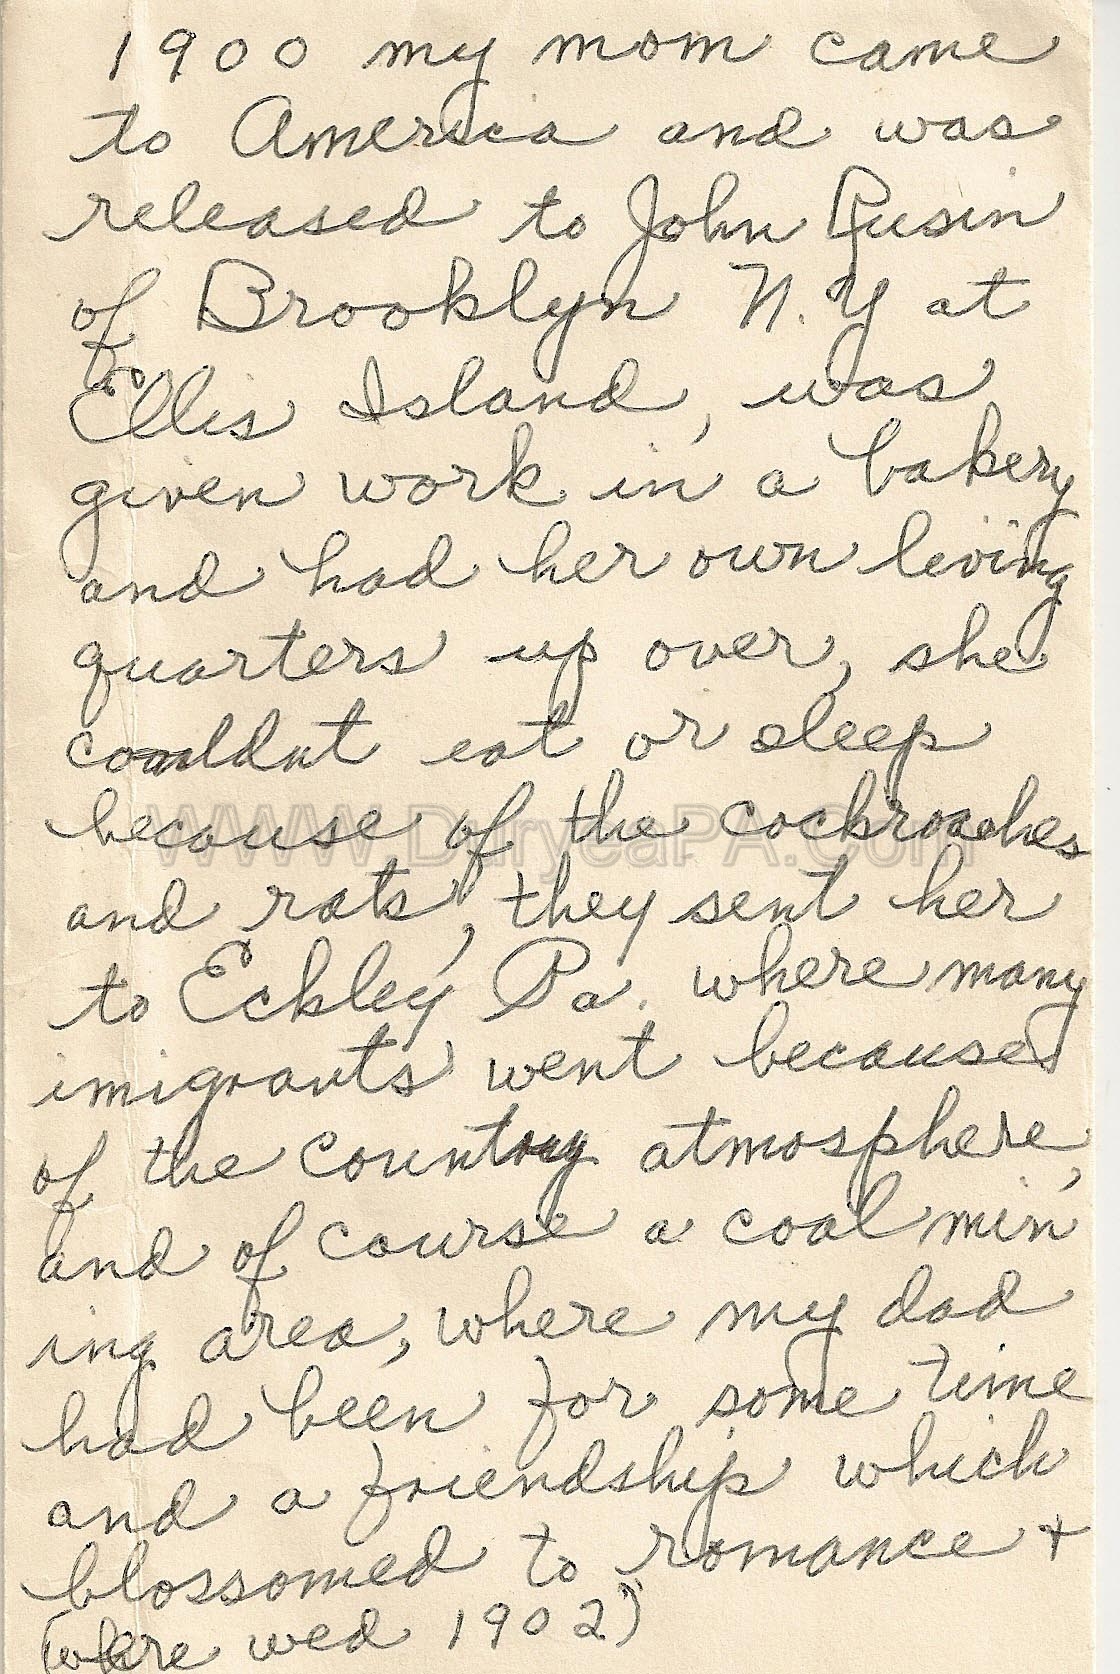 1900 my mom came
to America and was
released to John Rusin
of Brooklyn N.Y at
Ellis Island, was
given work in a bakery
and had her own living
quarters up over, she
couldnt eat or sleep
because of the cockroaches
WWW.DuryeaPA.Com
and rats, they sent her
to Eckley Pa. where many
imigrants went because
of the country atmosphere,
and of course a coal min
ing area, where my dad
had been for some time
and a friendship which
blossomed to romance +
(were wed 1902)